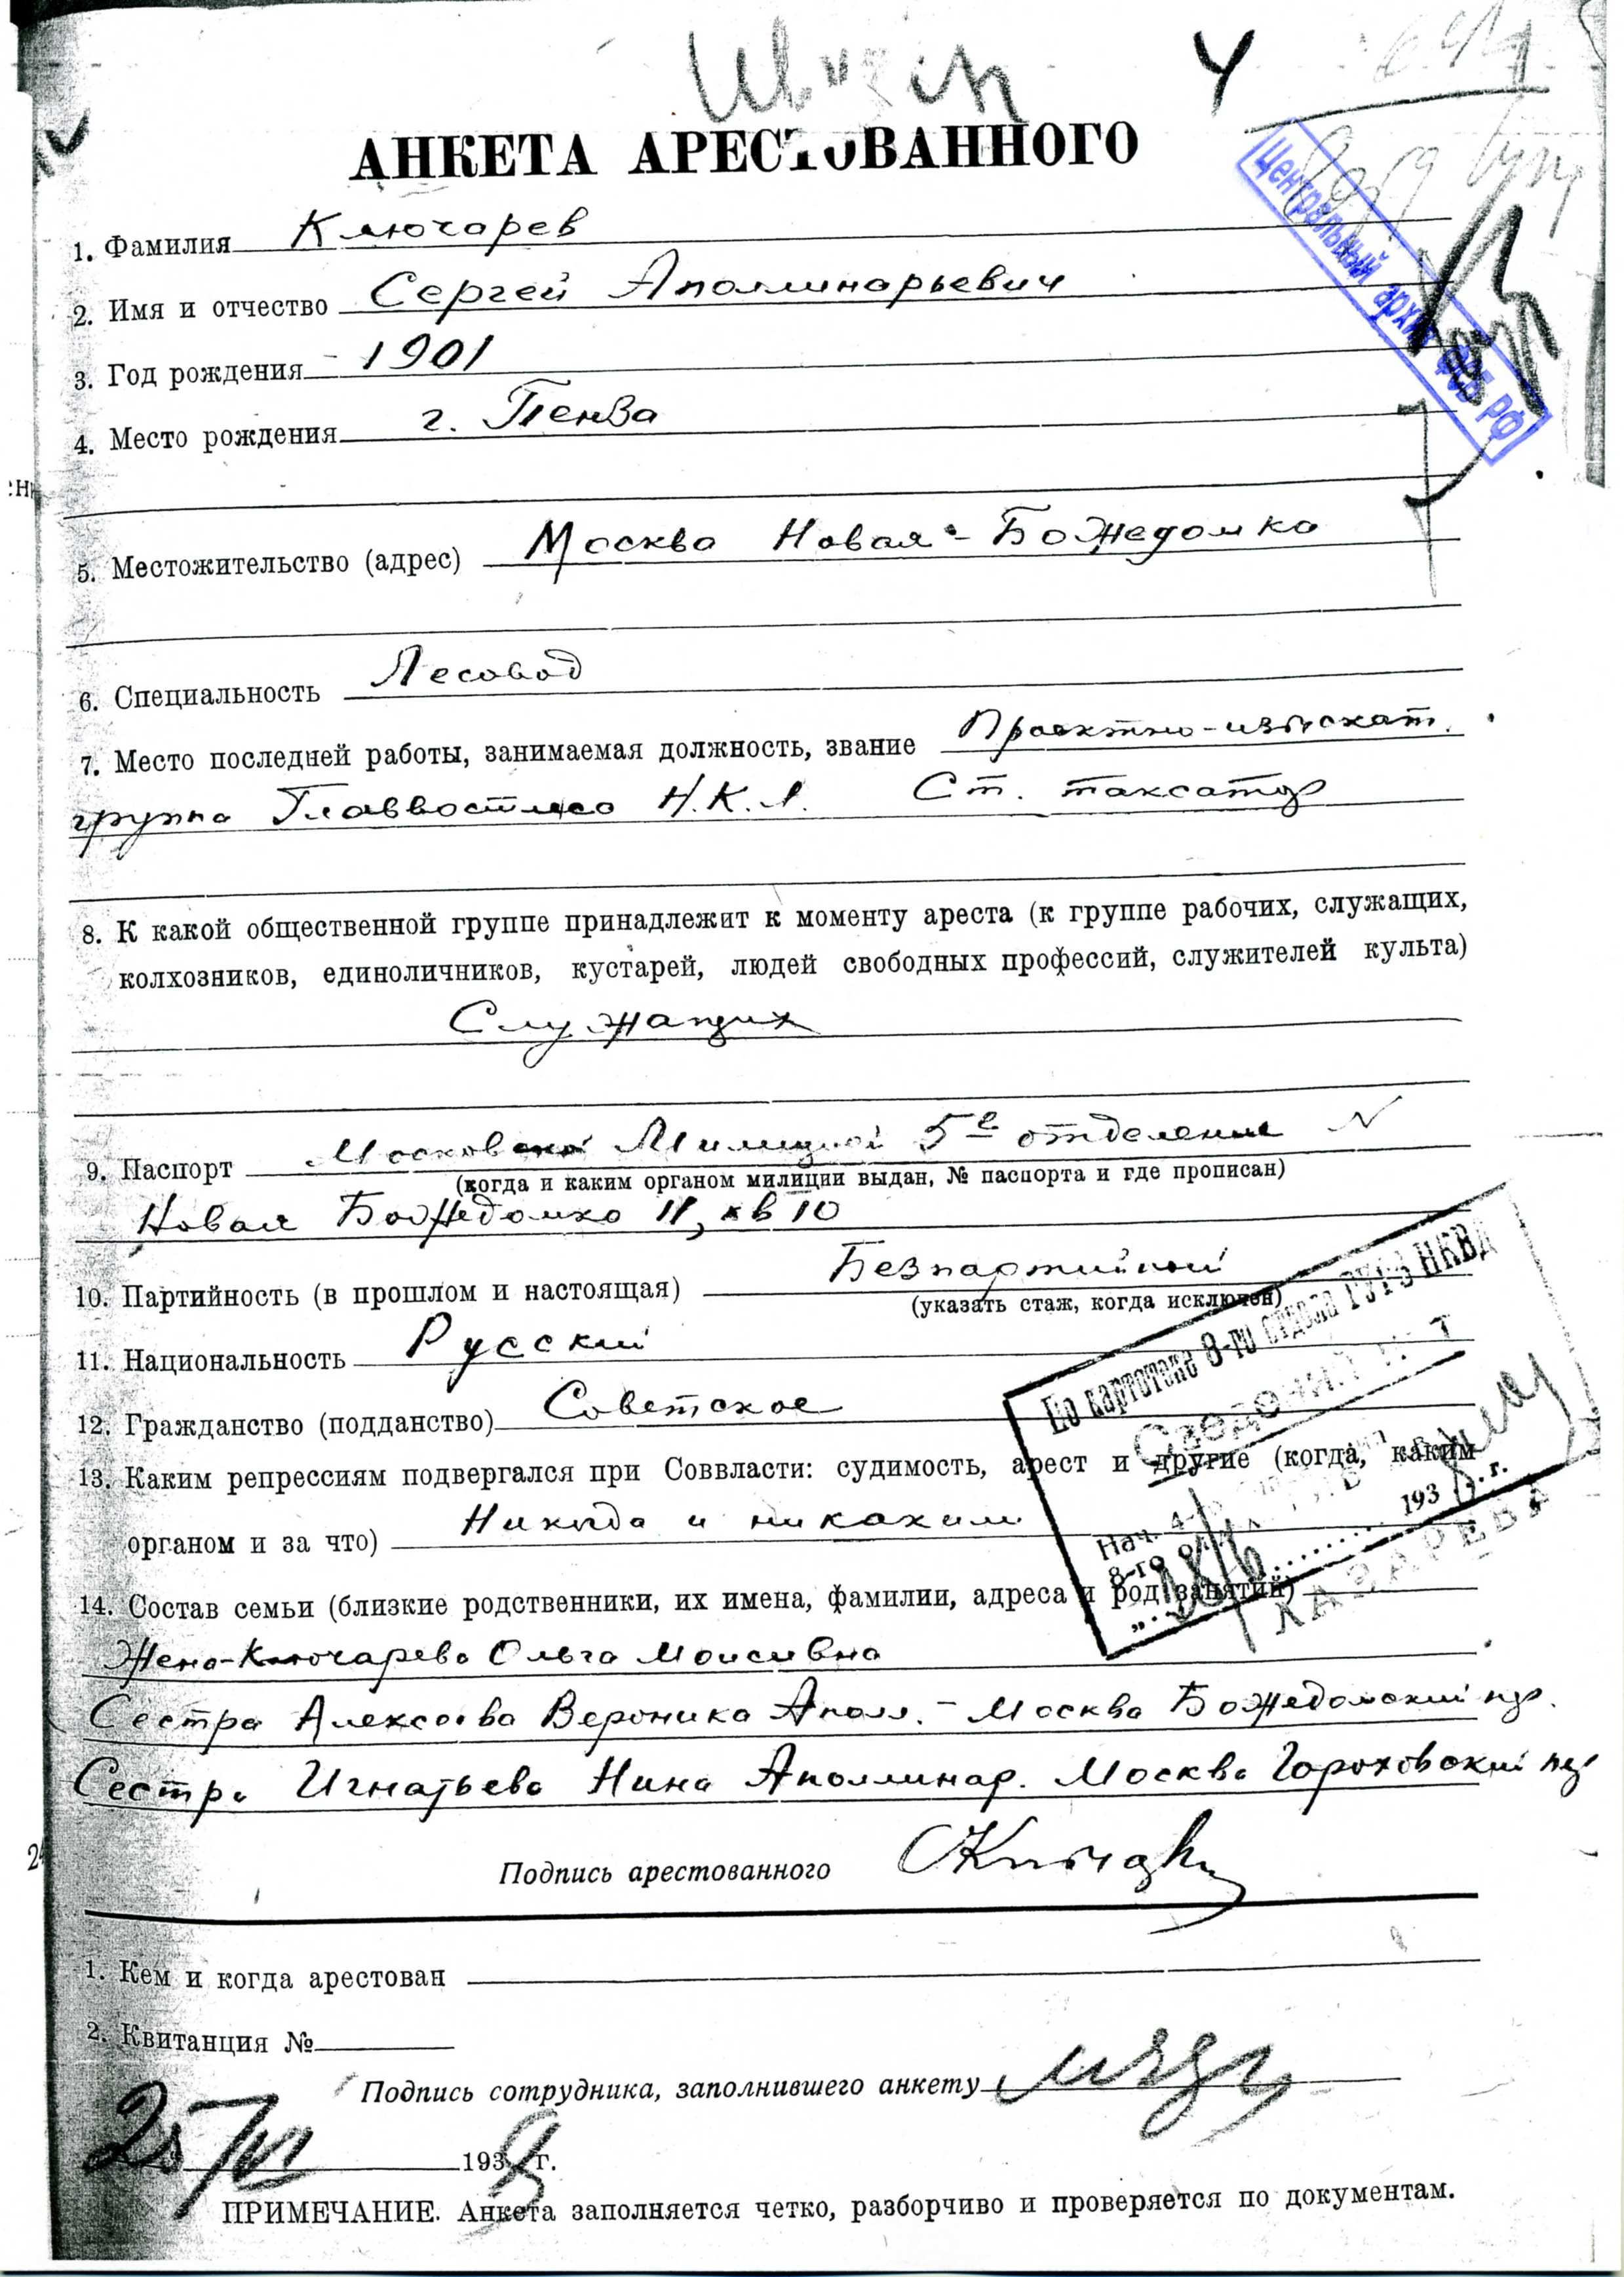 АНКЕТА АРЕСТОВАННОГО
Центральный архив ФСБ РФ
1. Фамилия Ключарев
2. Имя и отчество Сергей Аполлинарьевич
3. Год рождения 1901
4. Место рождения г. Пенза
5. Местожительство (адрес) Москва Новая-Божедомка
6. Специальность Лесовод
7. Место последней работы, занимаемая должность, звание Проектно-изыскат.
группа Главвостлеса Н.К.Л. Ст. таксатор
8. К какой общественной группе принадлежит к моменту ареста (к группе рабочих, служащих,
колхозников, единоличников, кустарей, людей свободных профессий, служителей культа)
Служащих
9. Паспорт Московской Милицией 5е отделение N
(когда и каким органом милиции выдан, № паспорта и где прописан)
Новая Божедомка 11, кв 10
10. Партийность (в прошлом и настоящая) Безпартийный
(указать стаж, когда исключен)
11. Национальность Русский
По картотеке 8-го отдела ГУГБ НКВД
Сведений нет
12. Гражданство (подданство) Советское
13. Каким репрессиям подвергался при Соввласти: судимость, арест и другие (когда, каким
органом и за что) Никогда и никаким
Нач. 4-го
8-го
193 г.
ЛАЗАРЕВА
14. Состав семьи (близкие родственники, их имена, фамилии, адреса и род занятий)
Жена-Ключарева Ольга Моисивна
Сестра Алексеева Вероника Апол. - Москва Божедомский пер.
Сестра Игнатьева Нина Аполлинар. Москва Гороховский пер
Подпись арестованного
1. Кем и когда арестован
2. Квитанция №
Подпись сотрудника, заполнившего анкету
25/VI 1938 г.
ПРИМЕЧАНИЕ. Анкета заполняется четко, разборчиво и проверяется по документам.